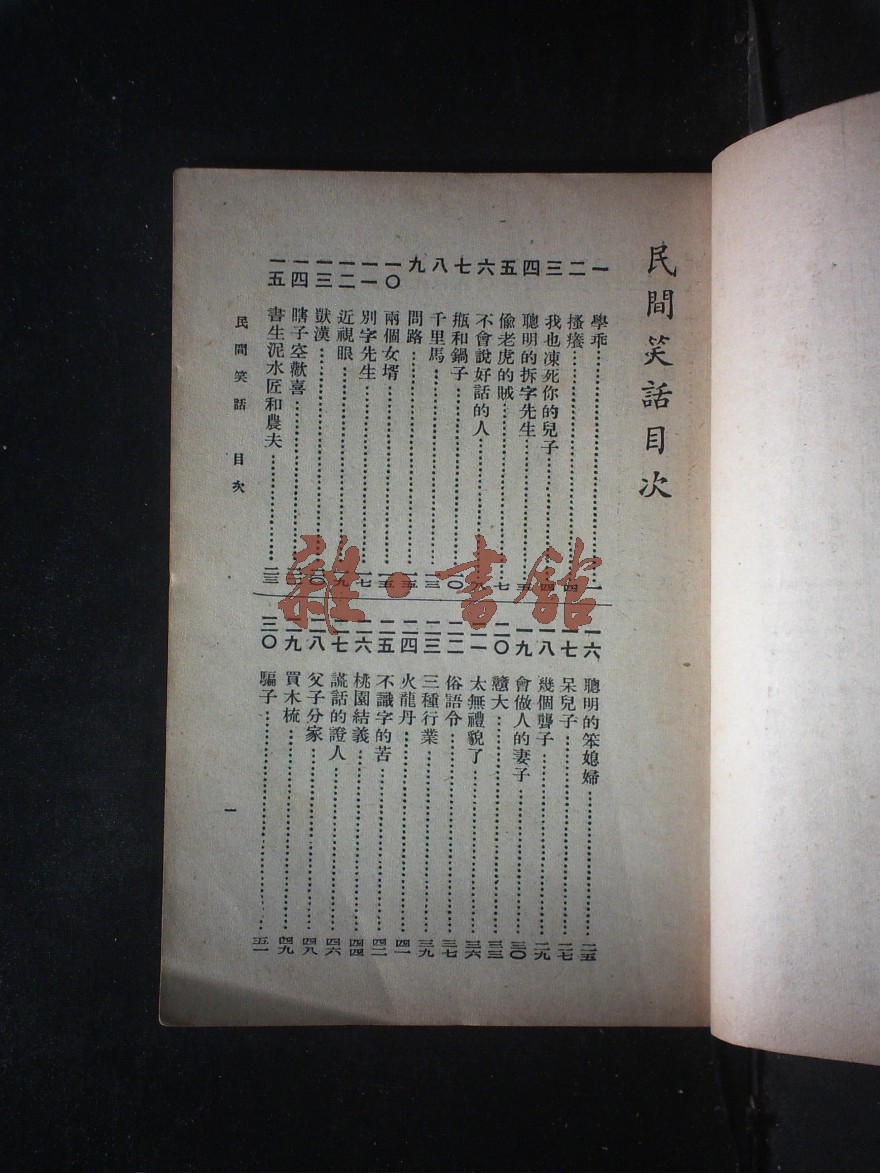 民間笑話目次
一 學乖……一
二 搔癢……四
三 我也凍死你的兒子……四
四 聰明的拆字先生……五
五 偷老虎的賊……七
六 不會說好話的人……八
七 瓶和鍋子……一〇
八 千里馬……一三
九 問路……一五
一〇 兩個女壻……一五
一一 別字先生……一七
一二 近視眼……一九
一三 獃漢……二〇
一四 瞎子空歡喜
一五 書生泥水匠和農夫……二三
一六 聰明的笨媳婦……二五
一七 呆兒子……二七
一八 幾個聾子……二九
一九 會做人的妻子……三〇
二〇 戇大……三三
二一 太無禮貌了……三六
二二 俗語令……三七
二三 三種行業……三九
二四 火龍丹……四一
二五 不識字的苦……四二
二六 桃園結義……四四
二七 謊話的證人……四六
二八 父子分家……四八
二九 買木梳……四九
三〇 騙子……五一
民間笑話 目次
一
雜·書館